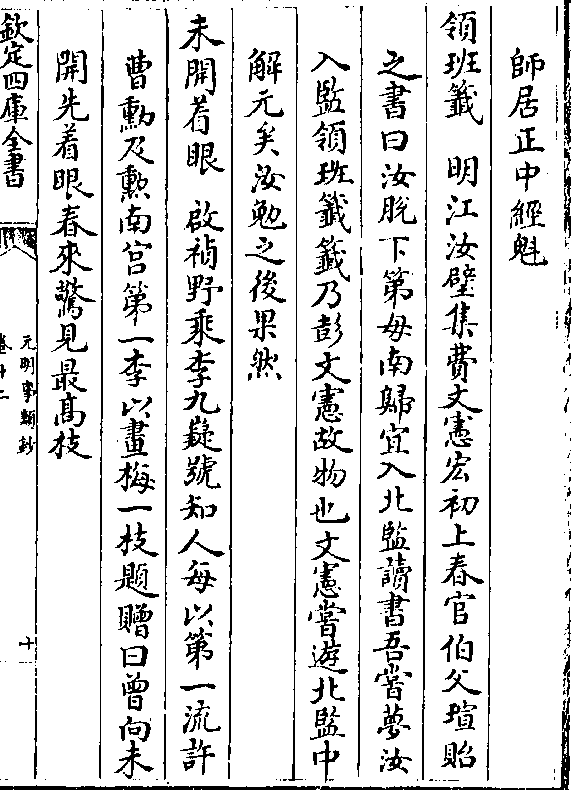 師居正中經魁
領班籤　明江汝璧集費文憲宏初上春官伯父瑄貽
之書曰汝脫下第毋南歸宜入北監讀書吾嘗夢汝
入監領班籤籤乃彭文憲故物也文憲嘗遊北監中
解元矣汝勉之後果然
未開着眼　啟禎野乘李九疑號知人每以第一流許
曹勳及勲南宫第一李以畫梅一枝題贈曰曾向未
開先着眼春來驚見最髙枝
欽定四庫全書
元明事類鈔
卷十二
十